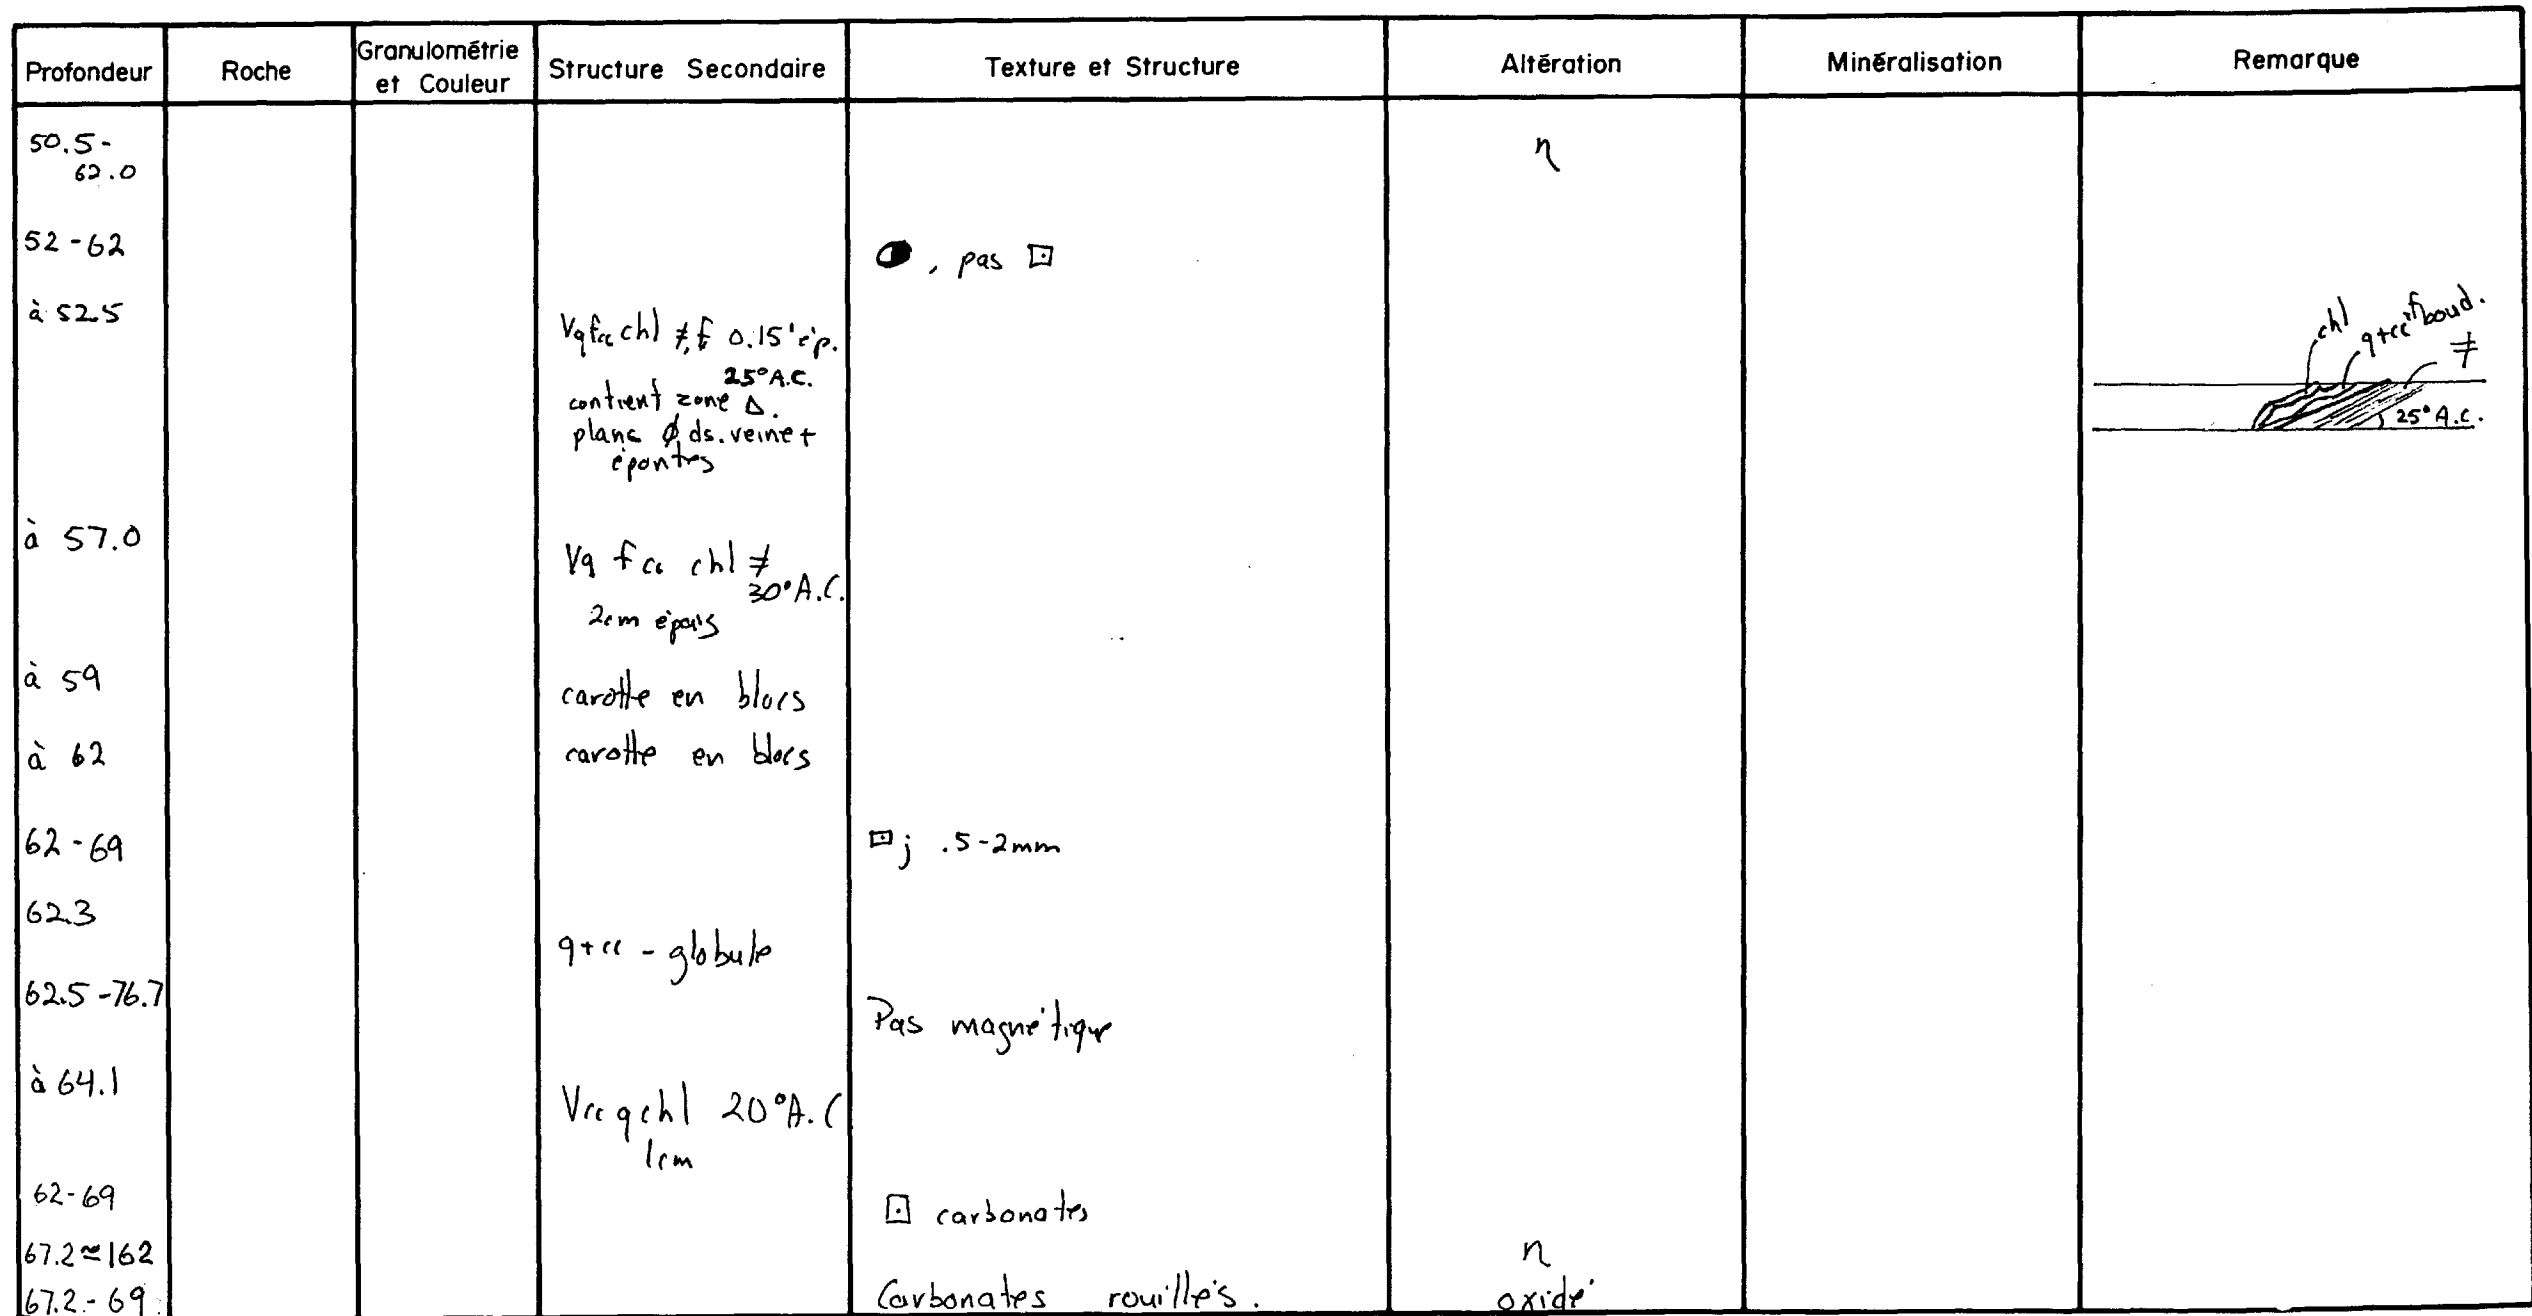 Profondeur Roche Granulométrie et Couleur Structure Secondaire Texture et Structure Altération Minéralisation Remarque
50.5-
62.0 η
52-62 , pas ⊡
à 52.5 Vqfcc chl ≠, f 0.15' ép.
25° A.C.
contient zone Δ.
plans ϕ ds. veine +
épontes
chl
q+cc boud.
≠
25° A.C.
à 57.0 Vq fcc chl ≠
30° A.C.
2cm épais
à 59 carotte en blocs
à 62 carotte en blocs
62-69 ⊡ j .5-2mm
62.3 q+cc - globule
62.5-76.7 Pas magnétique
à 64.1 Vcc q chl 20° A.C
1cm
62-69 ⊡ carbonates
67.2≃162 η
67.2-69 Carbonates rouillés. oxidé